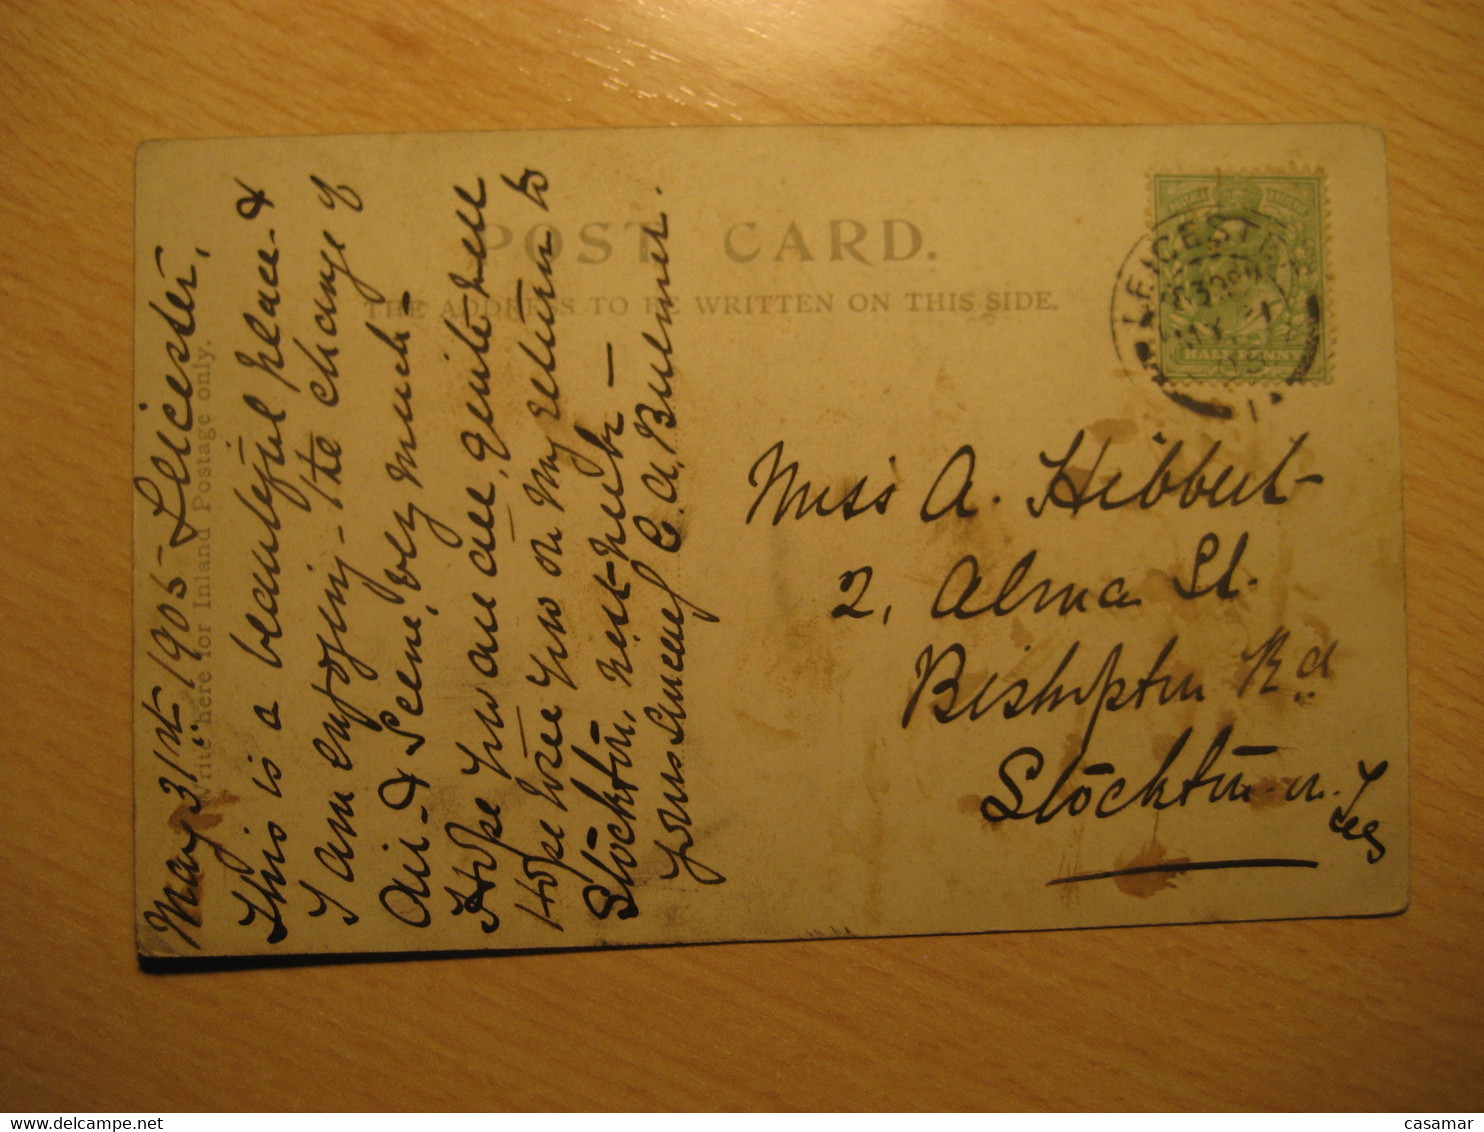 POST CARD.
THE ADDRESS TO BE WRITTEN ON THIS SIDE.
Write here for Inland Postage only.
May 31st 1905 Leicester,
This is a beautiful place &
I am enjoying the change of
air & scene, very much -
Hope you are all quite well
Hope to see you on my return to
Stockton, next week -
Yours sincerely C. A. Bulmer.
Miss A. Hibbert
2, Alma St.
Bishopton Rd
Stockton-on-
Tees
LEICESTER
MY 31
05
HALF PENNY
casamar